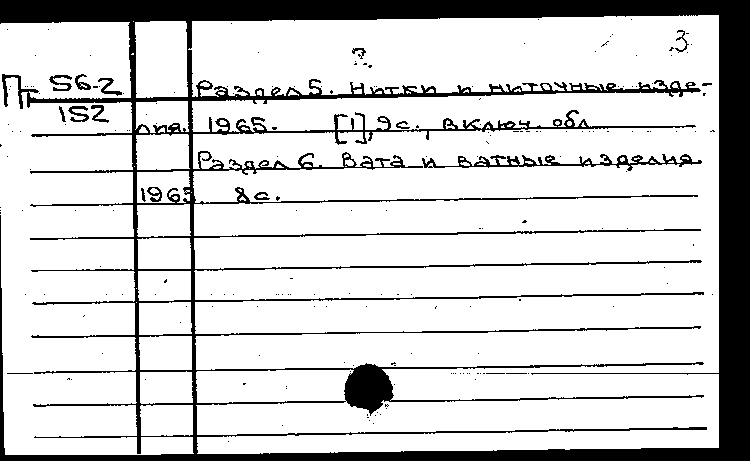 3
Пт S6-2
152
Раздел 5. Нитки и ниточные изде-
лия. 1965. [1], 9 с., включ. обл
Раздел 6. Вата и ватные изделия.
1965. 8 с.